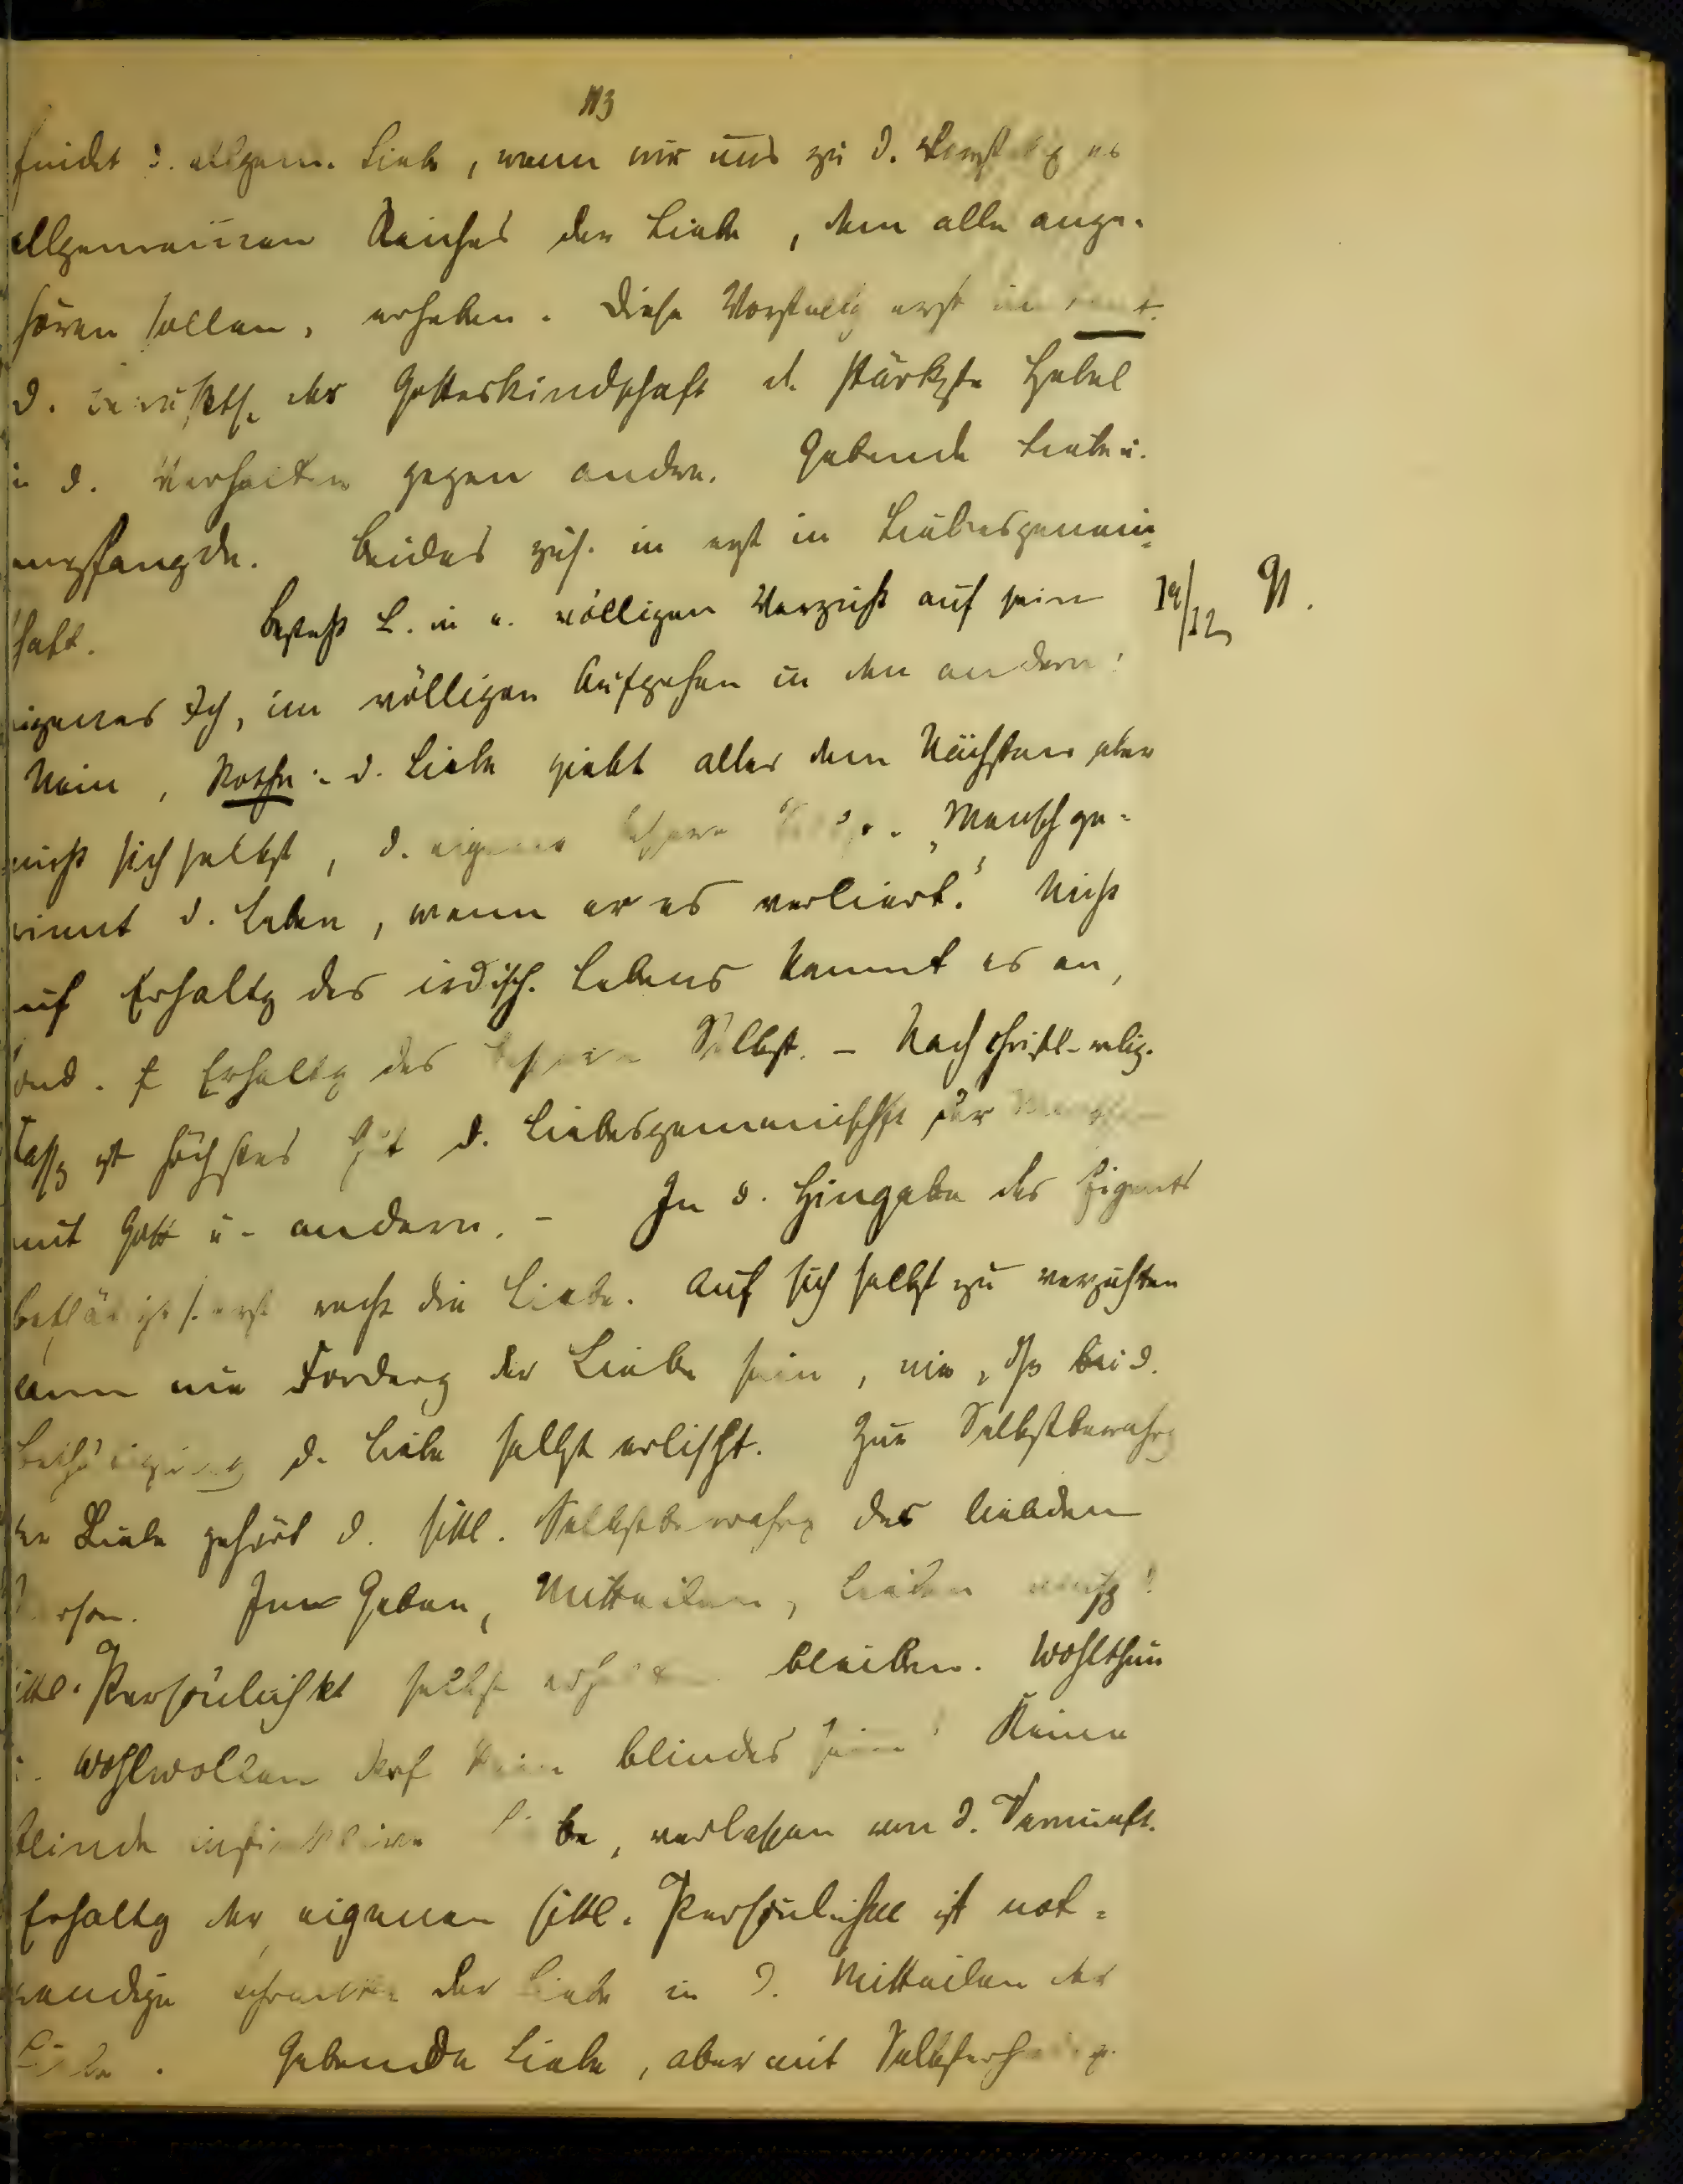 113
findet d. allgem. Liebe, wenn wir uns zu d. Vorstellg es
allgemeinen Reiches der Liebe, dem alle ange-
hören sollen, erheben. Diese Vorstellg erst
d. der Gotteskindschaft d. stärkste Hebel
in d. Verhalten gegen andre. Gebende Liebe u.
empfangde. Beides zus. in erst in Liebesgemein-
schaft. Besteht L. in e. völligen Verzicht auf sein 19/12 N.
eigenes Ich, im völligen Aufgehen in den andern?
Nein, Rothe: d. Liebe giebt alles dem Nächsten aber
nicht sich selbst, d. eigene bessere „Mensch ge-
winnt d. Leben, wenn er es verliert." Nicht
auf Erhaltg des irdisch. Lebens kommt es an,
sond. f Erhaltg des bessern Selbst. – Nach christl-relig.
Fassg ist höchstes Gut d. Liebesgemeinschft der
mit Gott u. andern. – In d. Hingabe des Eigents
bethätigt s. erst recht die Liebe. Auf sich selbst zu verzichten
kann nie Forderg der Liebe sein, nie, dss bei d.
Bethätigung d. Liebe selbst erlischt. Zur Selbstbewahrg
der Liebe gehört d. sittl. Selbstbewahrg des liebden
Person. Im Geben, Mitteilen, Leiden muss d
sittl. Persönlichkt selbst erhalten bleiben. Wohlthun
u. Wohlwollen darf kein blindes sein! Keine
blinde instinktive Liebe, verlassen von d. Vernunft.
Erhaltg der eigenen sittl. Persönlichkt ist not-
wendige Schranke der Liebe in d. Mitteilen der
Liebe. Gebende Liebe, aber mit Selbsterhaltg.